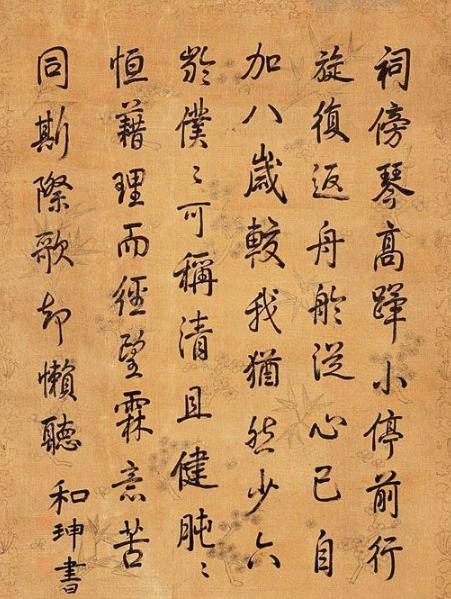 祠傍琴高蹕小停前行
旋復返舟舲從心已自
加八歲較我猶然少六
齡僕〻可稱清且健肫〻
恒藉理而經望霖意苦
同斯際歌却懶聽
和珅書